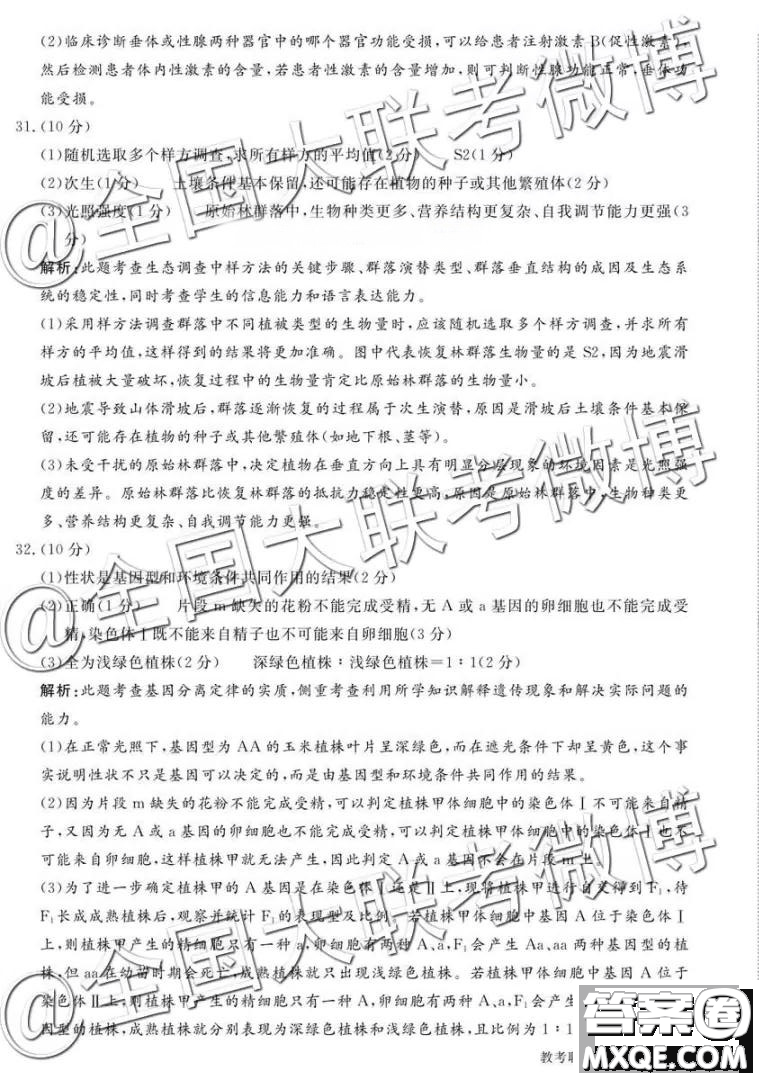 (2)临床诊断垂体或性腺两种器官中的哪个器官功能受损,可以给患者注射激素B(促性激素),
然后检测患者体内性激素的含量,若患者性激素的含量增加,则可判断性腺功能正常,垂体功
能受损。
31.(10 分)
(1)随机选取多个样方调查,求所有样方的平均值(2 分)  S2(1 分)
(2)次生(1 分)  土壤条件基本保留,还可能存在植物的种子或其他繁殖体(2 分)
(3)光照强度(1 分)  原始林群落中,生物种类更多、营养结构更复杂、自我调节能力更强(3
分)
解析:此题考查生态调查中样方法的关键步骤、群落演替类型、群落垂直结构的成因及生态系
统的稳定性,同时考查学生的信息能力和语言表达能力。
(1)采用样方法调查群落中不同植被类型的生物量时,应该随机选取多个样方调查,并求所有
样方的平均值,这样得到的结果将更加准确。图中代表恢复林群落生物量的是 S2,因为地震滑
坡后植被大量破坏,恢复过程中的生物量肯定比原始林群落的生物量小。
(2)地震导致山体滑坡后,群落逐渐恢复的过程属于次生演替,原因是滑坡后土壤条件基本保
留,还可能存在植物的种子或其他繁殖体(如地下根、茎等)。
(3)未受干扰的原始林群落中,决定植物在垂直方向上具有明显分层现象的环境因素是光照强
度的差异。原始林群落比恢复林群落的抵抗力稳定性更高,原因是原始林群落中,生物种类更
多、营养结构更复杂、自我调节能力更强。
32.(10 分)
(1)性状是基因型和环境条件共同作用的结果(2 分)
(2)正确(1 分)  片段 m 缺失的花粉不能完成受精,无 A 或 a 基因的卵细胞也不能完成受
精,染色体Ⅰ既不能来自精子也不可能来自卵细胞(3 分)
(3)全为浅绿色植株(2 分)  深绿色植株∶浅绿色植株=1∶1(2 分)
解析:此题考查基因分离定律的实质,侧重考查利用所学知识解释遗传现象和解决实际问题的
能力。
(1)在正常光照下,基因型为 AA 的玉米植株叶片呈深绿色,而在遮光条件下却呈黄色,这个事
实说明性状不只是基因可以决定的,而是由基因型和环境条件共同作用的结果。
(2)因为片段 m 缺失的花粉不能完成受精,可以判定植株甲体细胞中的染色体Ⅰ不可能来自精
子,又因为无 A 或 a 基因的卵细胞也不能完成受精,可以判定植株甲体细胞中的染色体Ⅰ也不
可能来自卵细胞,这样植株甲就无法产生,因此判定 A 或 a 基因不会在片段 m 上。
(3)为了进一步确定植株甲的 A 基因是在染色体Ⅰ还是Ⅱ上,现将植株甲进行自交得到 F₁,待
F₁长成成熟植株后,观察并统计 F₁的表现型及比例。若植株甲体细胞中基因 A 位于染色体Ⅰ
上,则植株甲产生的精细胞只有一种 a,卵细胞有两种 A、a,F₁会产生 Aa、aa 两种基因型的植
株,但 aa 在幼苗时期会死亡,成熟植株就只出现浅绿色植株。若植株甲体细胞中基因 A 位于
染色体Ⅱ上,则植株甲产生的精细胞只有一种 A,卵细胞有两种 A、a,F₁会产生
因型的植株,成熟植株就分别表现为深绿色植株和浅绿色植株,且比例为 1∶1
教考联
@全国大联考微博
@全国大联考微博
@全国大联考微博
答案圈
MXQE.COM